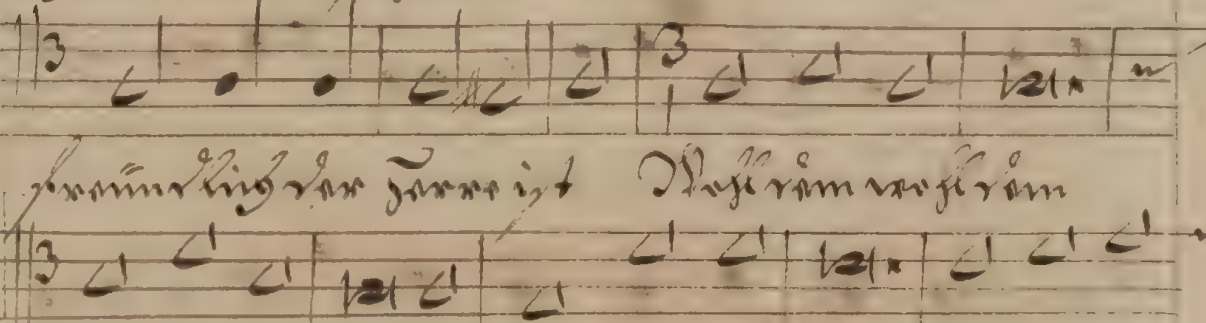 3 3
freündlich der Herre ist Wohl dem wohl dem
3